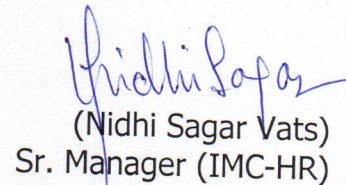 Nidhi Sagar
(Nidhi Sagar Vats)
Sr. Manager (IMC-HR)